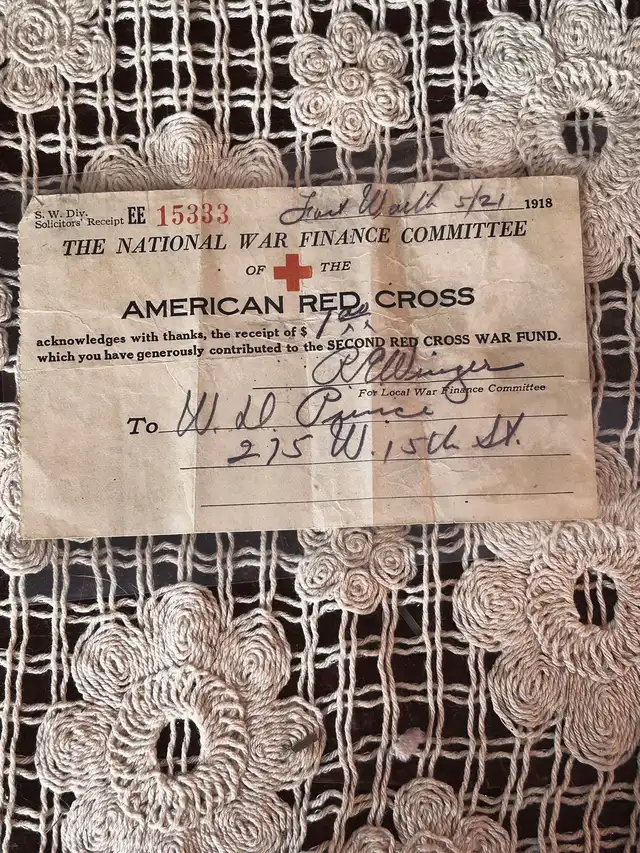 S. W. Div.
Solicitors' Receipt EE 15333 Fort Worth 5/21 1918
THE NATIONAL WAR FINANCE COMMITTEE
OF THE
AMERICAN RED CROSS
acknowledges with thanks, the receipt of $ 1
which you have generously contributed to the SECOND RED CROSS WAR FUND.
R E Winger
For Local War Finance Committee
To W. D. Prince
275 W. 15th St.